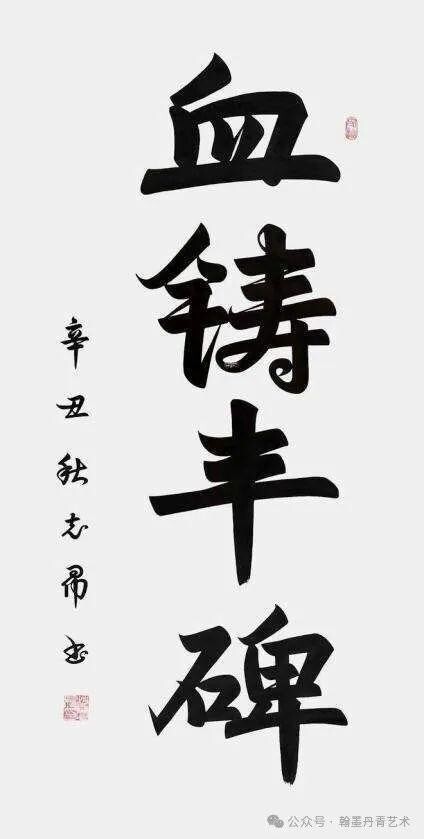 血铸丰碑
辛丑秋志昂书
公众号·翰墨丹青艺术